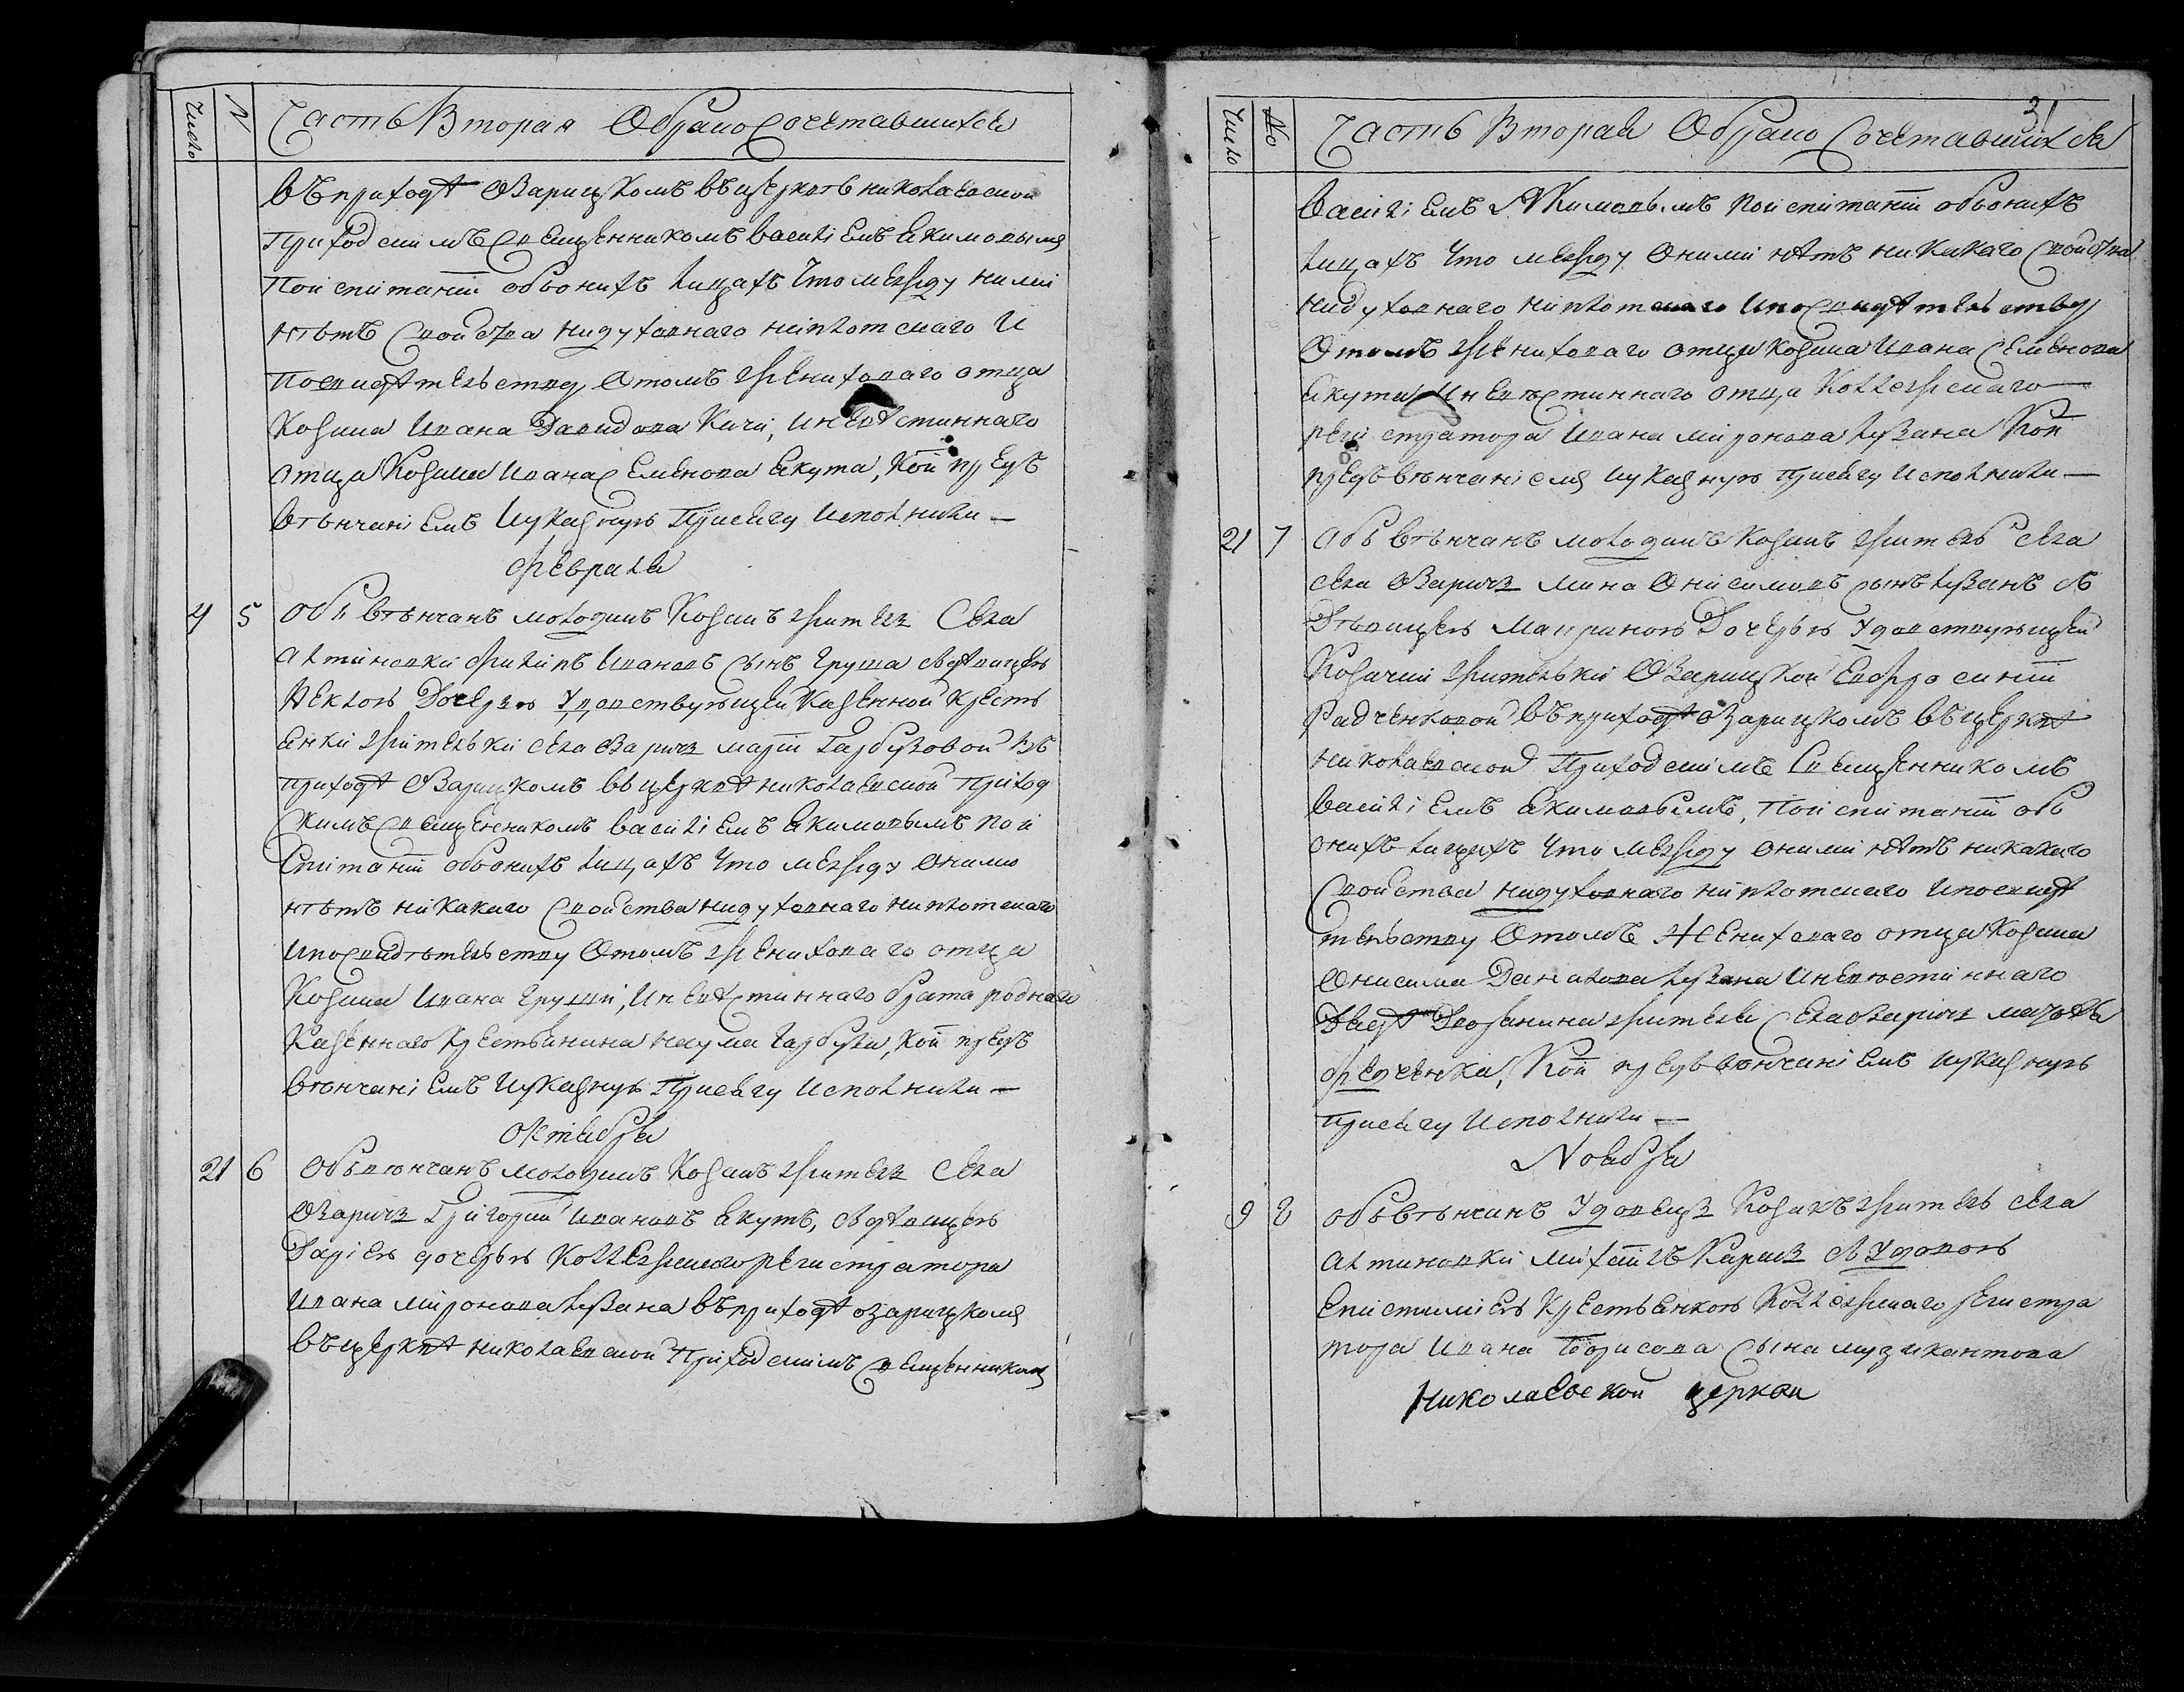 Число
N
Часть Вторая О бракосочетавшихся
въ приходѣ Озарицкомъ въ церквѣ николаевской
Приходскимъ Священникомъ василіемъ Акимовымъ
По испитаніи обьонихъ лицахъ Что между ними
нѣтъ Свойства нидуховнаго ниплотскаго И
по свидѣтельству Отомъ женихового отца
Козака Ивана Давидова Кичи, Иневѣстиннаго
отца Козака Ивана Семенова Акута, Кои предъ
вѣнчаніемъ Иуказную Присягу Исполнили —
февраля
4
5
Обь вѣнчанъ молодикъ Козакъ житель Села
Алтиновки филипъ Ивановъ Сынъ Груша сдѣвицею
Ѳеклою Дочерью Удовствующей Казенной Кресть
янки жительки села Озаричъ маріи Гарбузовой въ
приходѣ Озарицкомъ въ церквѣ николаевской Приход
Скимъ Священникомъ василіемъ Акимовымъ по и
Спитаніи обьонихъ лицахъ Что между оними
нѣтъ никакаго Свойства нидуховнаго ниплотскаго
Ипосвидѣтельству Отомъ женихового отца
Козака Ивана Груши, Иневѣстиннаго брата роднаго
Казеннаго Крестьянина наума Гарбуза, Кои предъ
вѣнчаніемъ Иуказную Присягу Исполнили —
Октября
21
6
Обьвѣнчанъ молодикъ Козакъ житель Села
Озаричъ Григорій Ивановъ Акутъ, сдѣвицею
Даріею дочерью Коллежскаго регистратора
Ивана миронова лузана въ приходѣ озарицкомъ
въ церквѣ николаевской Приходскимъ Священникомъ
Число
No
Часть Вторая О бракосочетавшихся
31
василіемъ Якимовымъ По испитаніи обьонихъ
лицахъ Что между оними нѣтъ никакаго Свойства
нидуховнаго ниплотскаго Ипосвидѣтельству
Отомъ женихового отца Козака Ивана Семенова
Акута Иневѣстиннаго отца Коллежскаго
регистратора Ивана миронова лузана Кои
предъ вѣнчаніемъ Иуказную Присягу Исполнили —
21
7
Обь вѣнчанъ молодикъ Козакъ житель села
села Озаричъ мина Онисимовъ сынъ лузанъ съ
Дѣвицею Мариною Дочерью Удовствующей
Козачки жительки Озарицкой Евфросиніи
Радченковой въ приходѣ Озарицкомъ въ церквѣ
николаевской Приходскимъ Священникомъ
василіемъ Акимовымъ, По испитаніи обь
онихъ лицахъ Что между оними нѣтъ никакаго
Свойства нидуховнаго ниплотскаго Ипосвидѣ
тельству Отомъ Женихового отца Козака
Онисима Данилова лузана Иневѣстиннаго
Дядѣ Дворянина жителя Села Озаричъ
федченка, Кои предъ вѣнчаніемъ Иуказную
Присягу Исполнили —
Ноября
9
8
обьвѣнчанъ Удовецъ Козакъ житель села
Алтиновки михаилъ Кириз сУдовою
Епистиміею Крестьянкою Коллежскаго регистра
тора Ивана Борисова Сына музикантова
Николаевской церкви